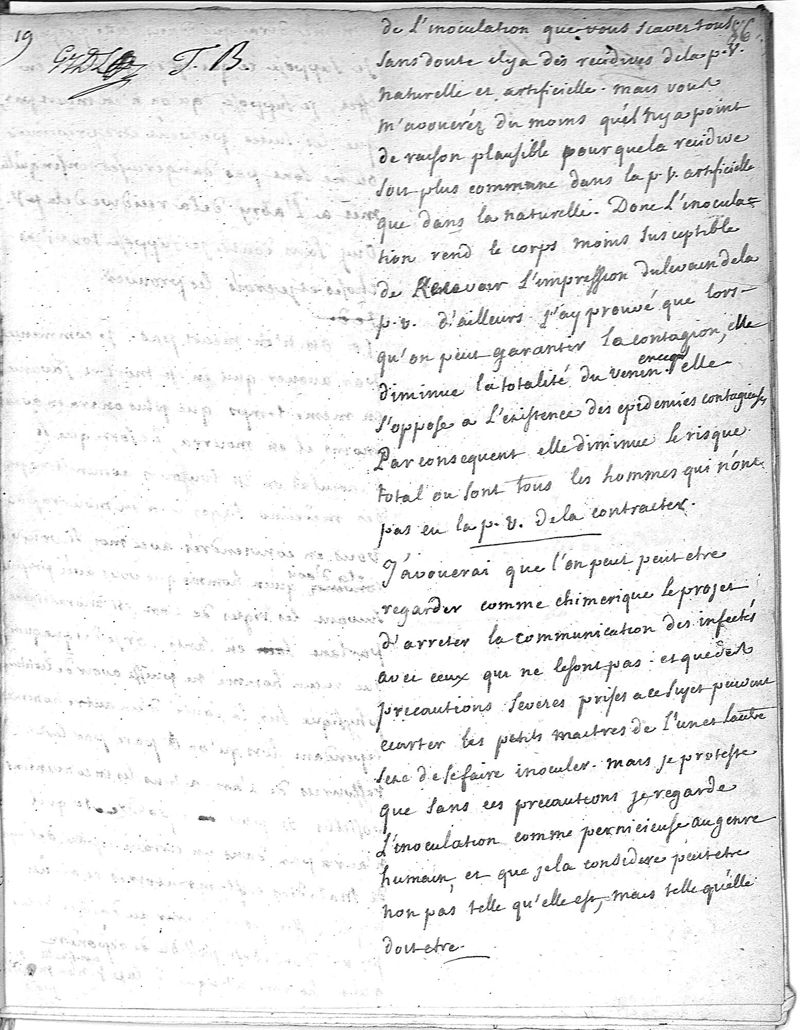 19
86.
T. B
de l'inoculation que vous scaves tous
sans doute il y a des recidives de la p. v.
naturelle et artificielle. mais vous
m'avoueréz du moins qu'el n'y a point
de raison plausible pourquela recidive
soit plus commune dans la p. v. artificielle
que dans la naturelle. Donc l'inocula=
tion rend le corps moins susceptible
de Recevoir l'impression dulevain dela
p. v. d'ailleurs j'ay prouvé que lors-
qu'on peut garantir la contagion, elle
diminue la totalité du venin encor elle
s'oppose a l'existence des epidemies contagieuses,
Par consequent elle diminue le risque
total ou sont tous les hommes qui n'ont
pas eu la p. v. de la contracter.
J'avouerai que l'on peut peut etre
regarder comme chimerique le projet
d'arreter la communication des infectés
avec ceux qui ne lesont pas. et que des
precautions severes prises a ce sujet peuvent
ecarter les petits maitres de l'un et lautre
sexe de sefaire inoculer. mais je proteste
que sans ces precautions je regarde
L'inoculation comme pernicieuse au genre
humain, et que je la considere peut etre
non pas telle qu'elle est, mais telle qu'elle
doit etre.